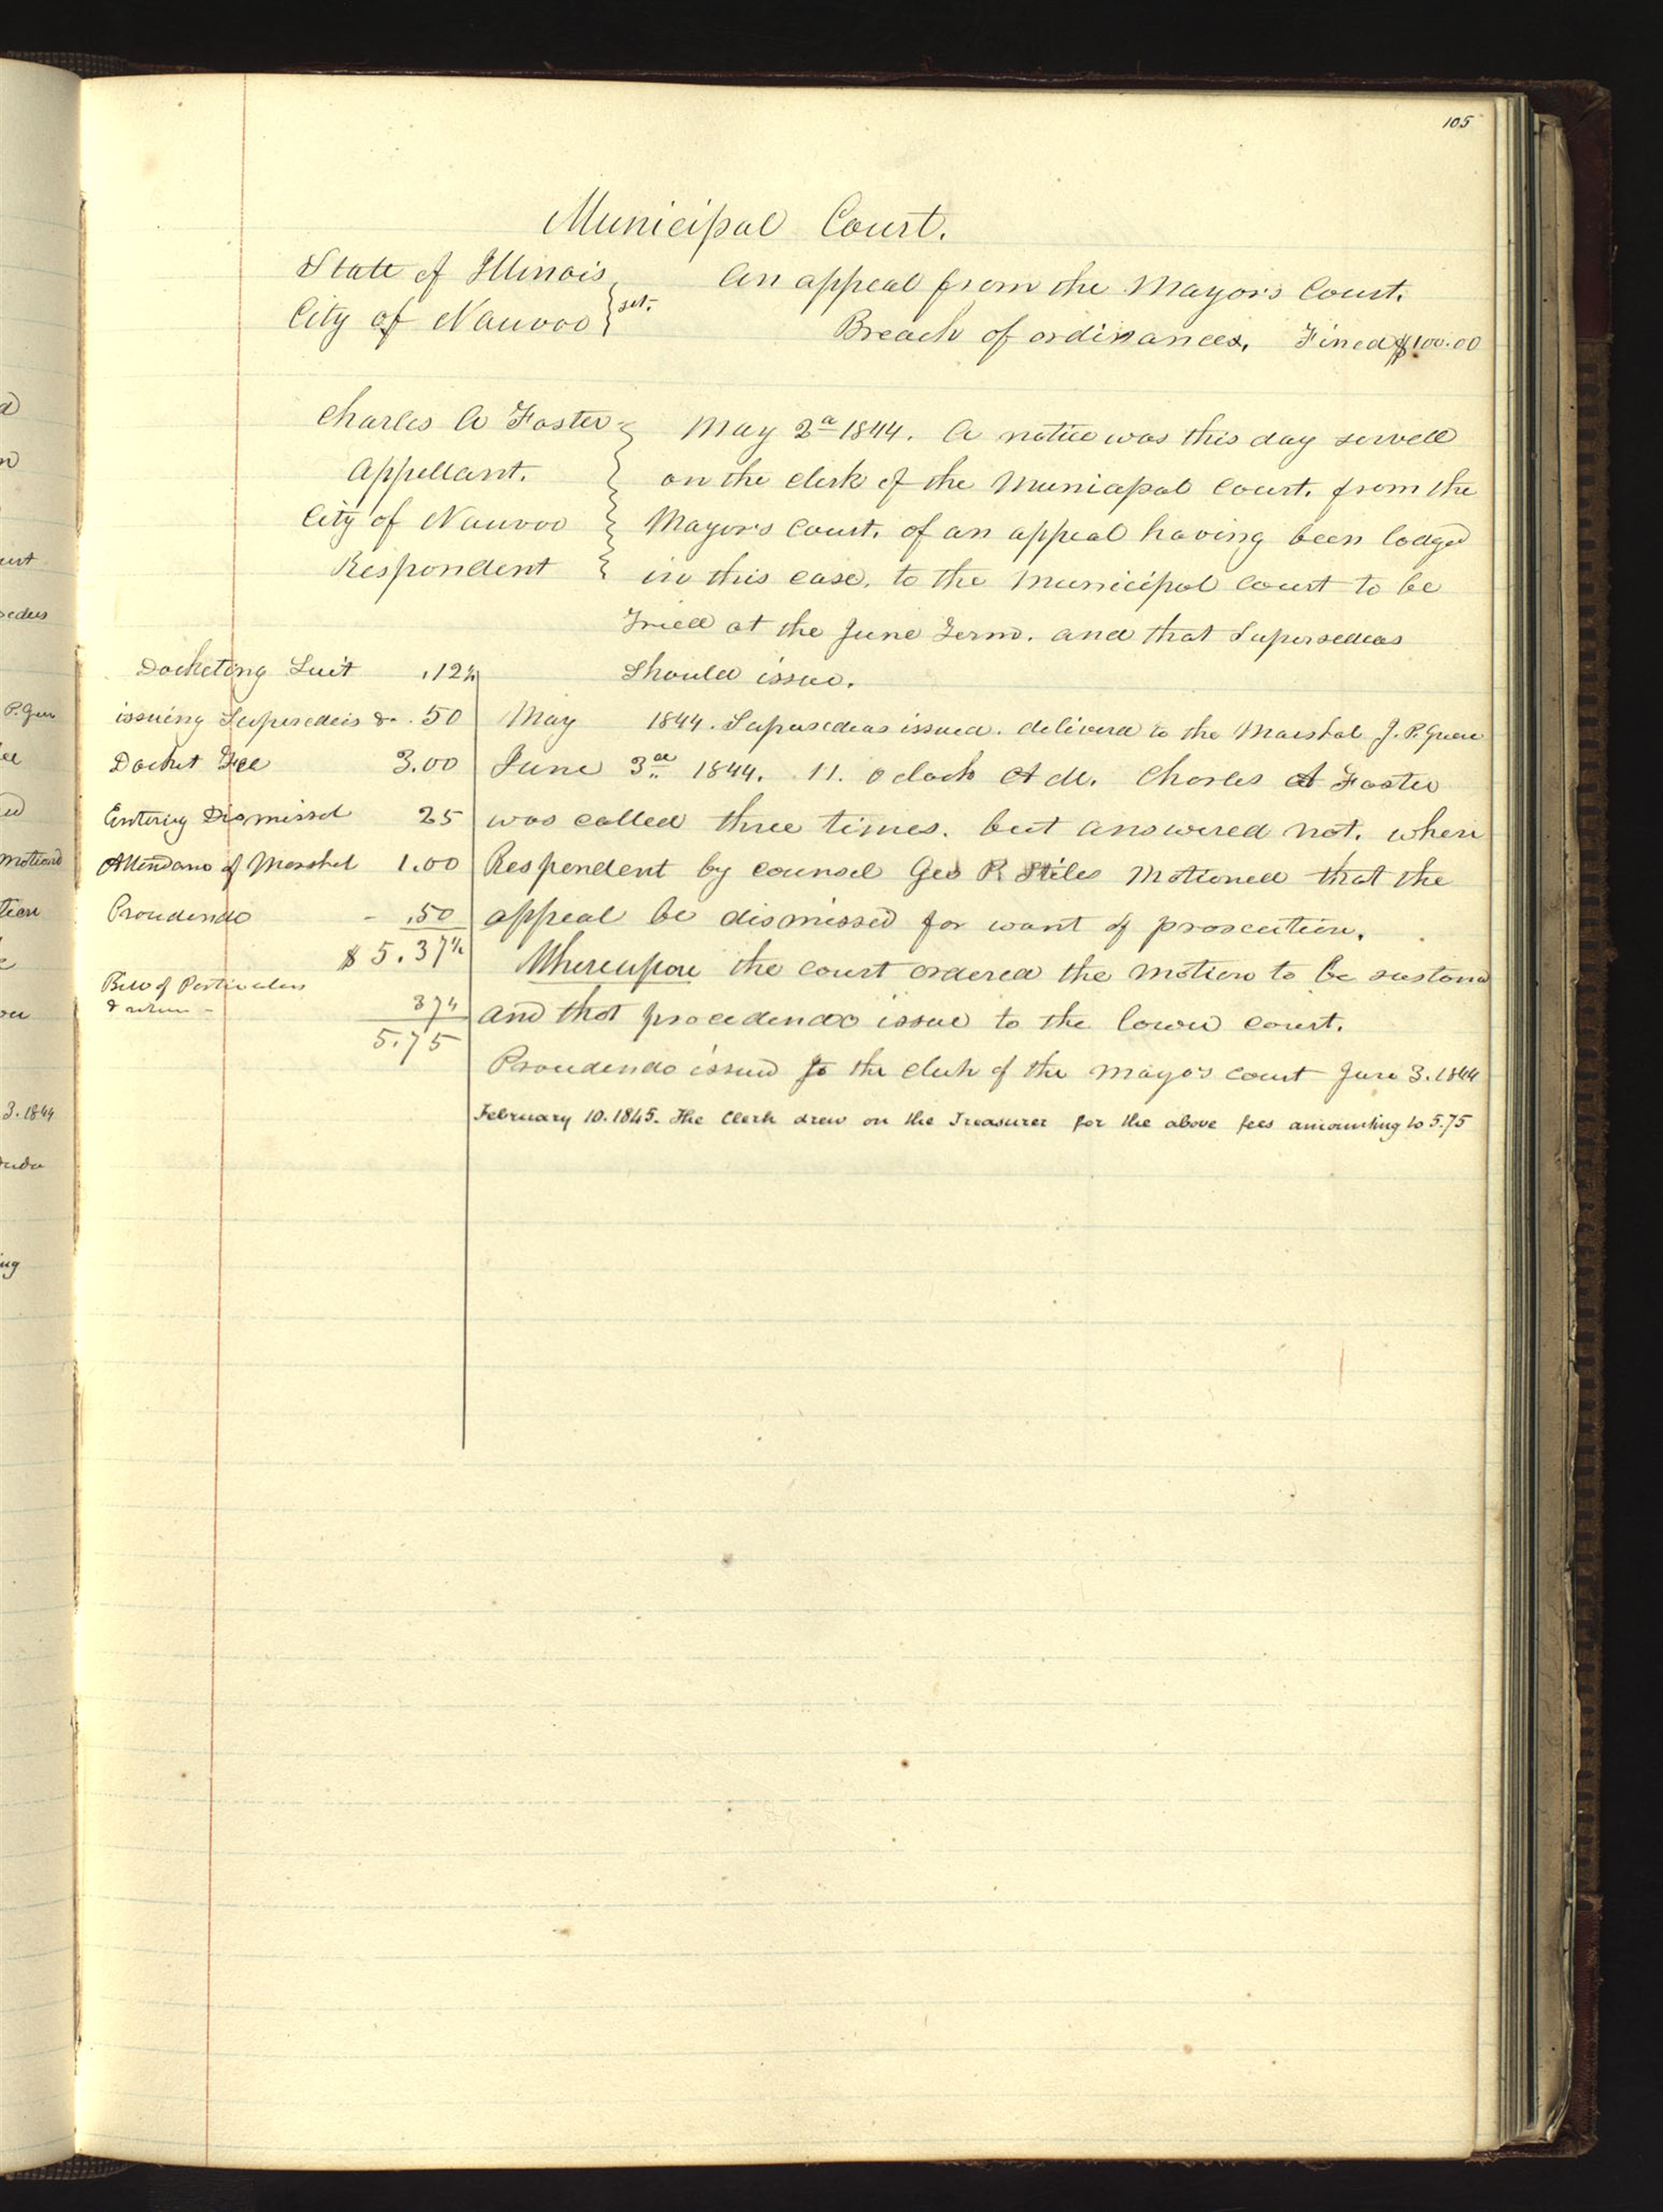 105
Municipal Court.
State of Illinois
City of Nauvoo } sct.
An appeal from the Mayor's Court.
Breach of ordinances, Fined $100.00
Charles A Foster
Appellant.
City of Nauvoo
Respondent
May 2d 1844. A notice was this day served
on the clerk of the Municipal Court, from the
Mayor's Court, of an appeal having been lodged
in this case, to the Municipal Court to be
Tried at the June Term. and that Supersedeas
Should issue.
May 1844. Supersedeas issued. delivered to the Marshal J. P. Green
June 3d 1844. 11. o clock A M. Charles A Foster
was called three times. but answered not. when
Respondent by counsel Geo P Stiles Motioned that the
appeal be dismissed for want of prosecution.
Whereupon the court ordered the motion to be sustond
and that procedendo issue to the lower court.
Procedendo issued to the clerk of the mayo's court June 3. 1844
February 10. 1845. The Clerk drew on the Treasurer for the above fees amounting to 5.75
Docketing Suit .12½
issuing Supersedeis &c .50
Docket Fee 3.00
Entering Dismissal 25
Attendanc of Marshal 1.00
Procedendo - .50
$5.37½
Bill of Particulars
& return - 37½
5.75
P. Green
motioned
3. 1844